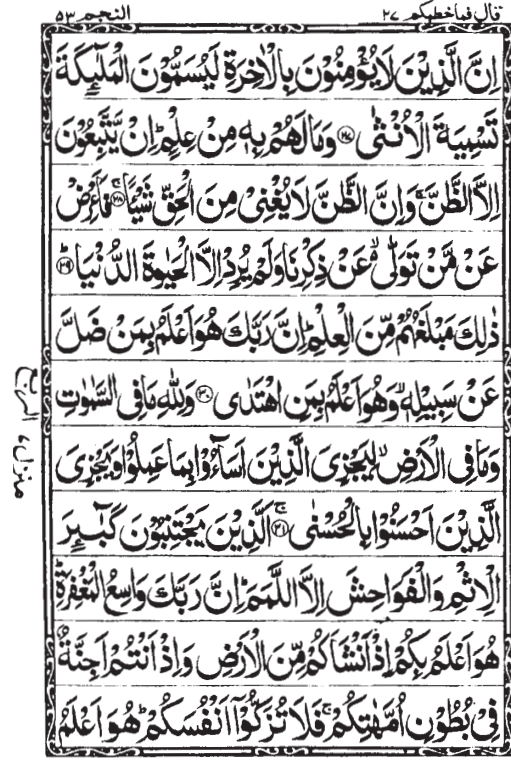 قال فماخطبكم ٢٧ النجم ٥٣
اِنَّ الَّذِيْنَ لَا يُؤْمِنُوْنَ بِالْاٰخِرَةِ لَيُسَمُّوْنَ الْمَلٰٓئِكَةَ
تَسْمِيَةَ الْاُنْثٰى ﴿٢٧﴾ وَمَا لَهُمْ بِهٖ مِنْ عِلْمٍ ؕ اِنْ يَّتَّبِعُوْنَ
اِلَّا الظَّنَّ ۚ وَاِنَّ الظَّنَّ لَا يُغْنِىْ مِنَ الْحَقِّ شَيْـًٔا ۚ ﴿٢٨﴾ فَاَعْرِضْ
عَنْ مَّنْ تَوَلّٰى ۙ عَنْ ذِكْرِنَا وَلَمْ يُرِدْ اِلَّا الْحَيٰوةَ الدُّنْيَا ؕ ﴿٢٩﴾
ذٰلِكَ مَبْلَغُهُمْ مِّنَ الْعِلْمِ ؕ اِنَّ رَبَّكَ هُوَ اَعْلَمُ بِمَنْ ضَلَّ
عَنْ سَبِيْلِهٖ ۙ وَهُوَ اَعْلَمُ بِمَنِ اهْتَدٰى ﴿٣٠﴾ وَلِلّٰهِ مَا فِى السَّمٰوٰتِ
وَمَا فِى الْاَرْضِ ۙ لِيَجْزِىَ الَّذِيْنَ اَسَآءُوْا بِمَا عَمِلُوْا وَيَجْزِىَ
الَّذِيْنَ اَحْسَنُوْا بِالْحُسْنٰى ۚ ﴿٣١﴾ اَلَّذِيْنَ يَجْتَنِبُوْنَ كَبٰٓئِرَ
الْاِثْمِ وَالْفَوَاحِشَ اِلَّا اللَّمَمَ ؕ اِنَّ رَبَّكَ وَاسِعُ الْمَغْفِرَةِ ؕ
هُوَ اَعْلَمُ بِكُمْ اِذْ اَنْشَاَكُمْ مِّنَ الْاَرْضِ وَاِذْ اَنْتُمْ اَجِنَّةٌ
فِىْ بُطُوْنِ اُمَّهٰتِكُمْ ۚ فَلَا تُزَكُّوْٓا اَنْفُسَكُمْ ؕ هُوَ اَعْلَمُ